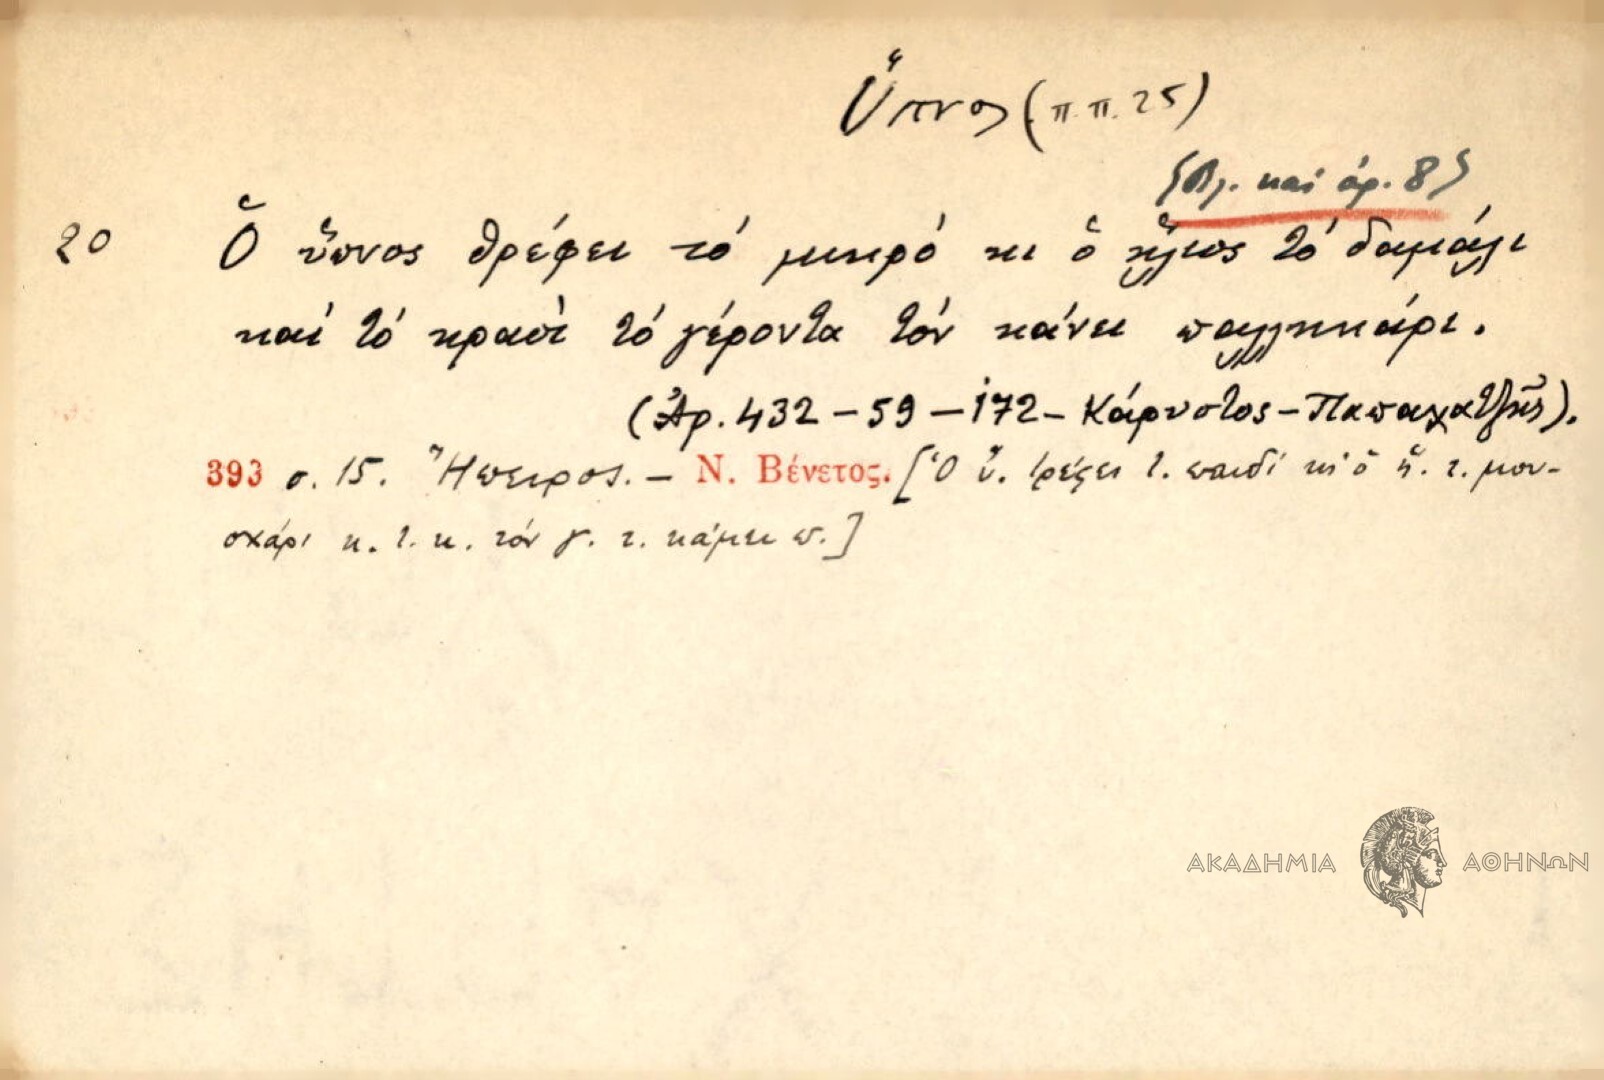 Ὕπνος (π.π. 25)
{Βλ. καὶ ἀρ. 8}
20 Ὁ ὕπνος θρέφει τό μικρό κι ὁ ἥλιος τό δαμάλι
καί τό κρασί τό γέροντα τόν κάνει παλληκάρι.
(Ἀρ. 432 – 59 – 172 – Κάρυστος – Παπαχατζῆς).
393 σ. 15. Ἤπειρος. – Ν. Βένετος. [Ὁ ὕ. τρέφει τ. παιδί κι ὁ ἥ. τ. μου-
σχάρι κ. τ. κ. τόν γ. τ. κάμει π.]
ΑΚΑΔΗΜΙΑ ΑΘΗΝΩΝ